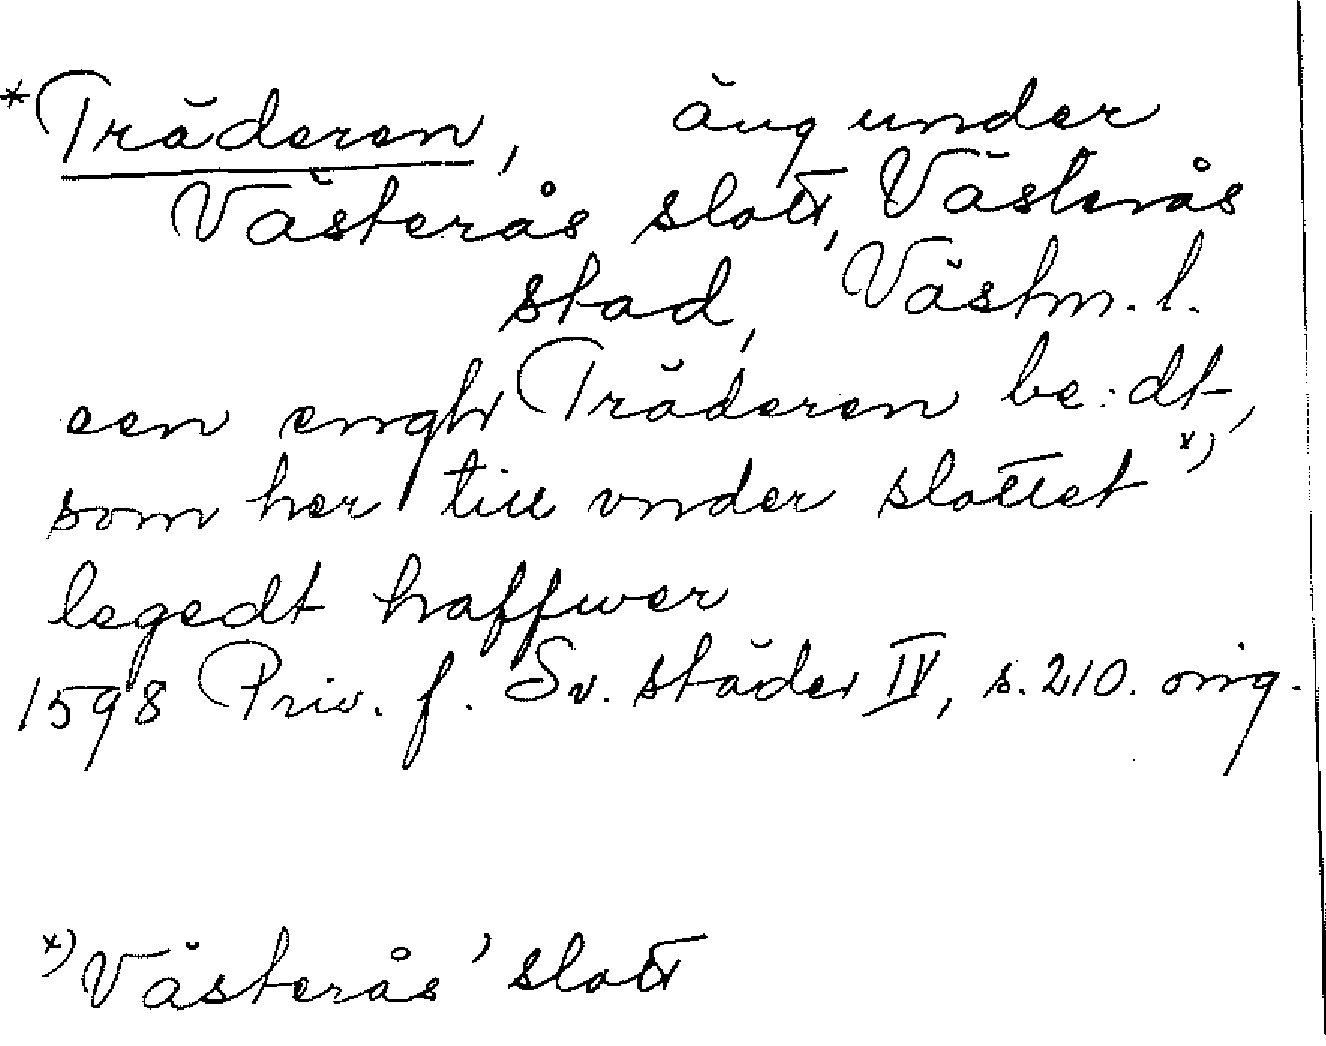 *Träderen, äng under
Västerås slott, Västerås
stad, Västm. l.
een engh Träderen be:dt,
som her till vnder slottet x)
legedt haffwer
1598 Priv. f. Sv. städer IV, s. 210. orig.
x) Västerås' slott